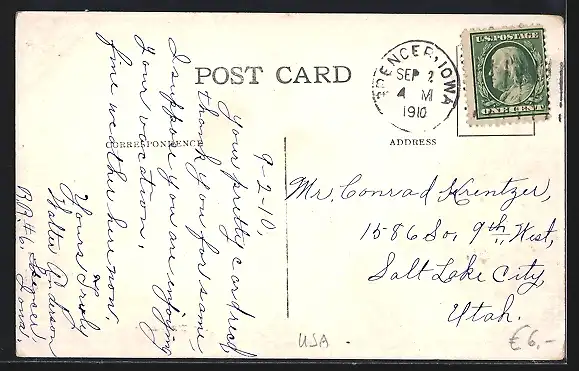 POST CARD
CORRESPONDENCE
ADDRESS
SPENCER, IOWA
SEP 2
4 M
1910
U.S. POSTAGE
ONE CENT
9-2-10,
Your pretty card rec'd
thank you for same
I suppose you are enjoying
your vacation.
fine weather here now.
Yours Truly
Walter Anderson
R.R. #6. Spencer,
Iowa.
Mr. Conrad Krentzer,
1586 So. 9th West,
Salt Lake City,
Utah.
USA
€6,-